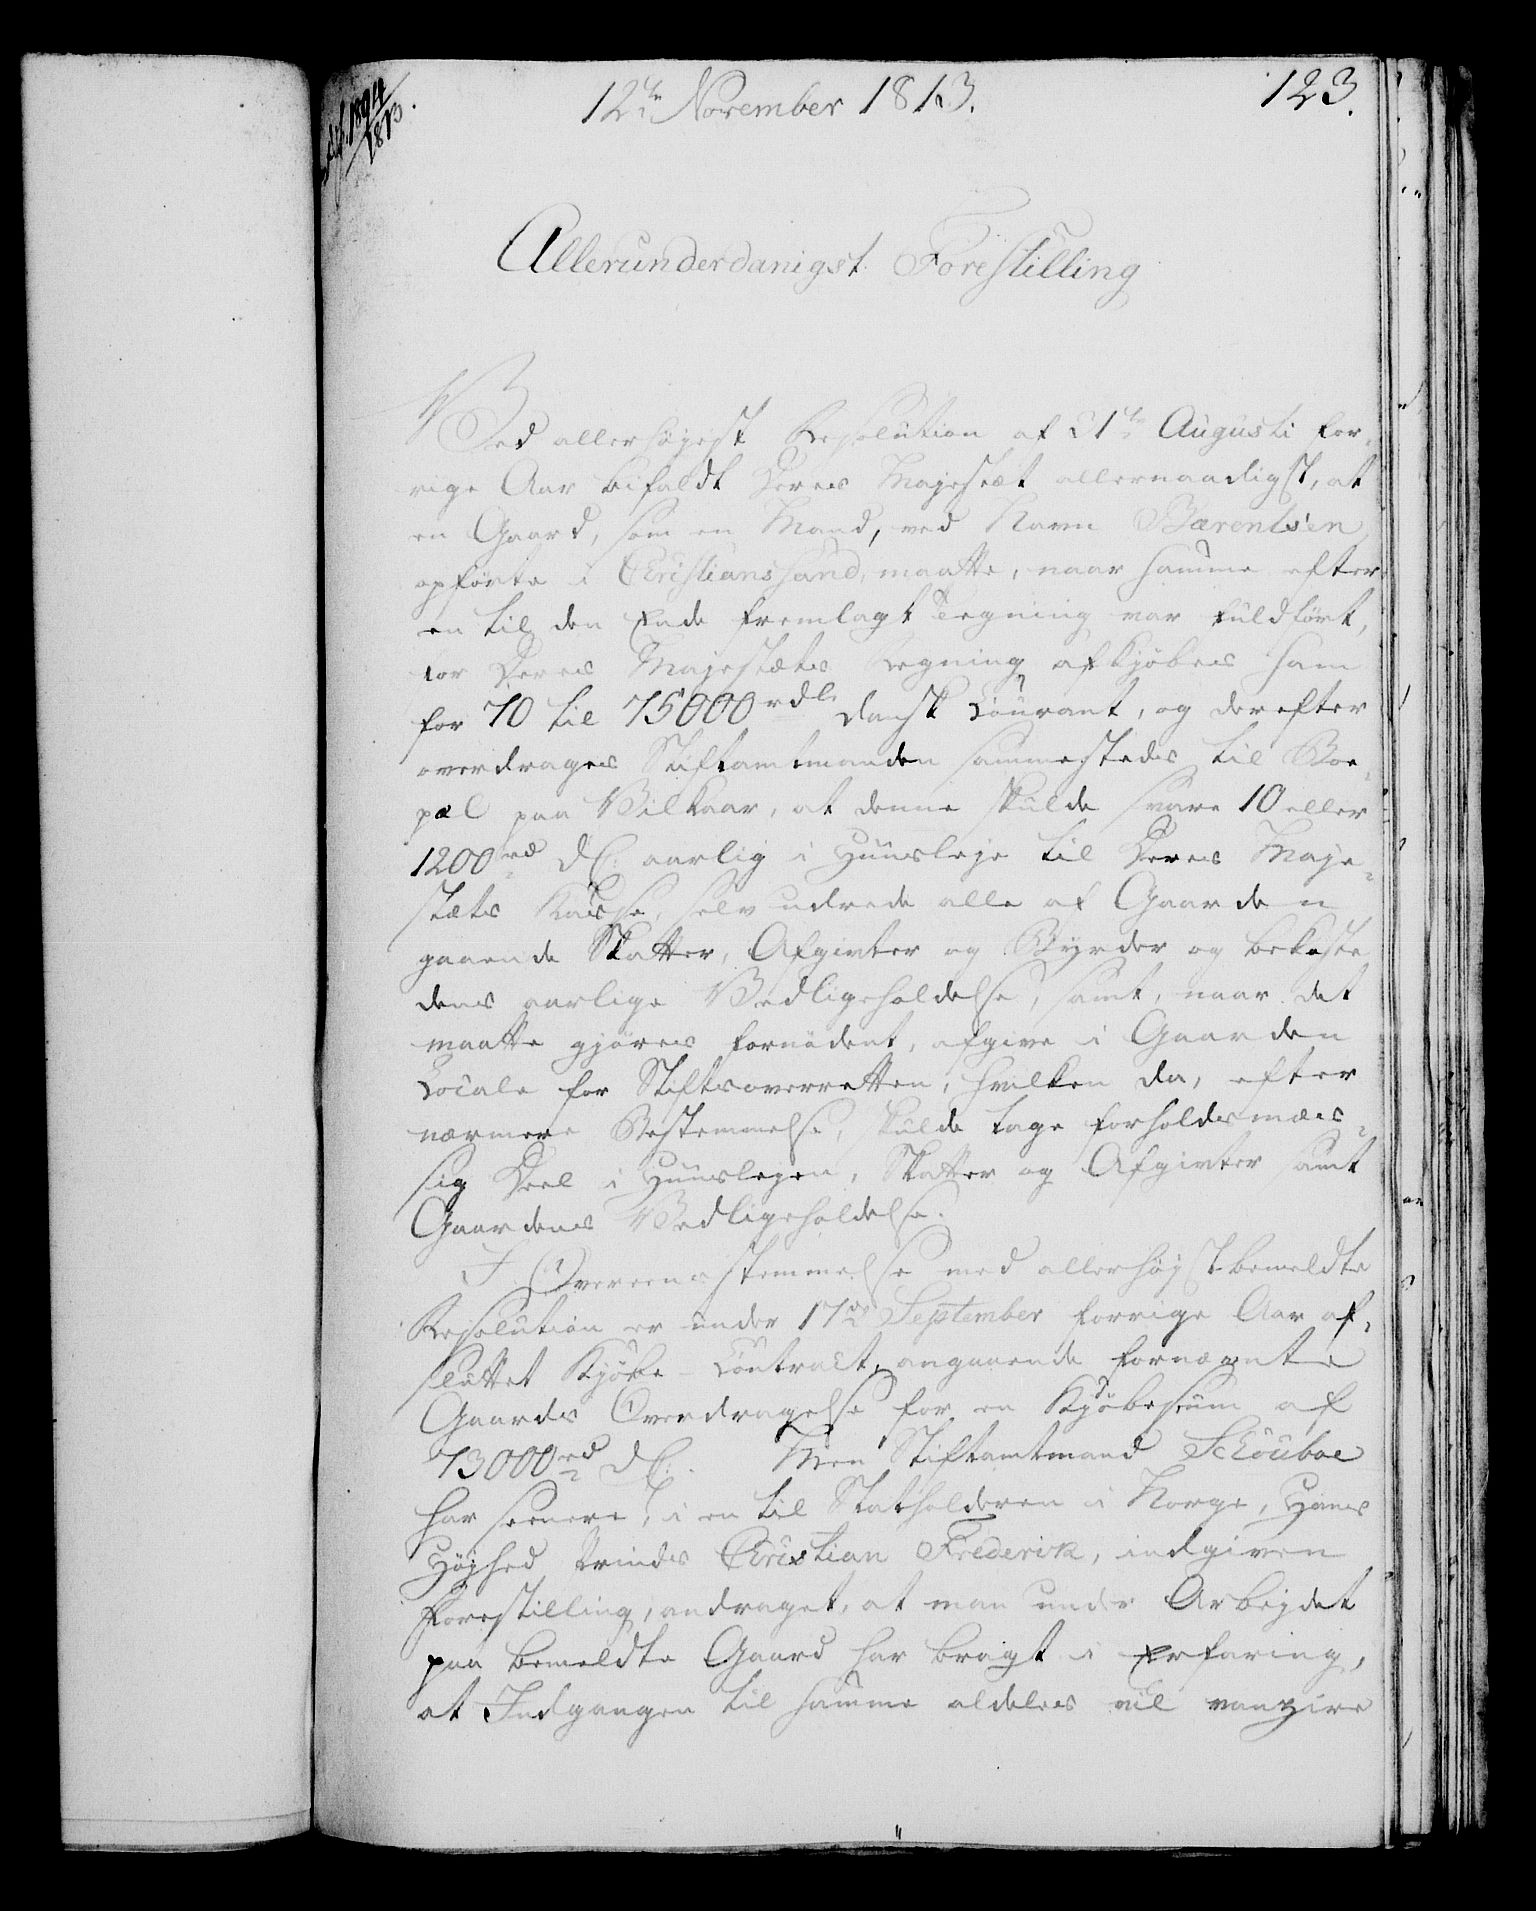 1894/1813.
12te November 1813.
123.
Allerunderdanigst Forestilling
Ved allerhøyest Resolution af 21te Augusti for-
rige Aar bifaldt Deres Majestæt allernaadigst, at
en Gaard, som en Mand, ved Navn Bærentsen
opførte i Christianssand, maatte, naar samme efter
en til den Ende fremlagt Tegning var fuldført,
for Deres Majestæts Regning afkjøbes ham
for 70 til 75000 rdlr dansk Courant, og derefter
overdrages Stiftamtmanden sammesteds til Boe-
pæl paa Vilkaar, at denne skulde svare 10 eller
1200 rd d.C. aarlig i Huusleje til Deres Maje-
stæts Kasse, selv udrede alle af Gaarden
gaaende Skatter, Afgivter og Byrder og bekoste
dens aarlige Vedligeholdelse, samt, naar det
maatte gjøres fornødent, afgive i Gaarden
Locale for Stiftsoverretten, hvilken da, efter
nærmere Bestemmelse, skulde tage forholdsmæs-
sig Deel i Huuslejen, Skatter og Afgivter samt
Gaardens Vedligeholdelse.
I Overeensstemmelse med allerhøjstbemeldte
Resolution er under 17de September forrige Aar af-
sluttet Kjøbe-Contract, angaaende fornævnte
Gaards Overdragelse for en Kjøbesum af
73000 rd d.C. Men Stiftamtmand Schouboe
har seenere, i en til Statholderen i Norge, Hans
Højhed Prinds Christian Frederik, indgiven
Forestilling, andraget, at man under Arbejdet
paa bemeldte Gaard har bragt i Erfaring,
at Indgangen til samme aldeles vil vanzire